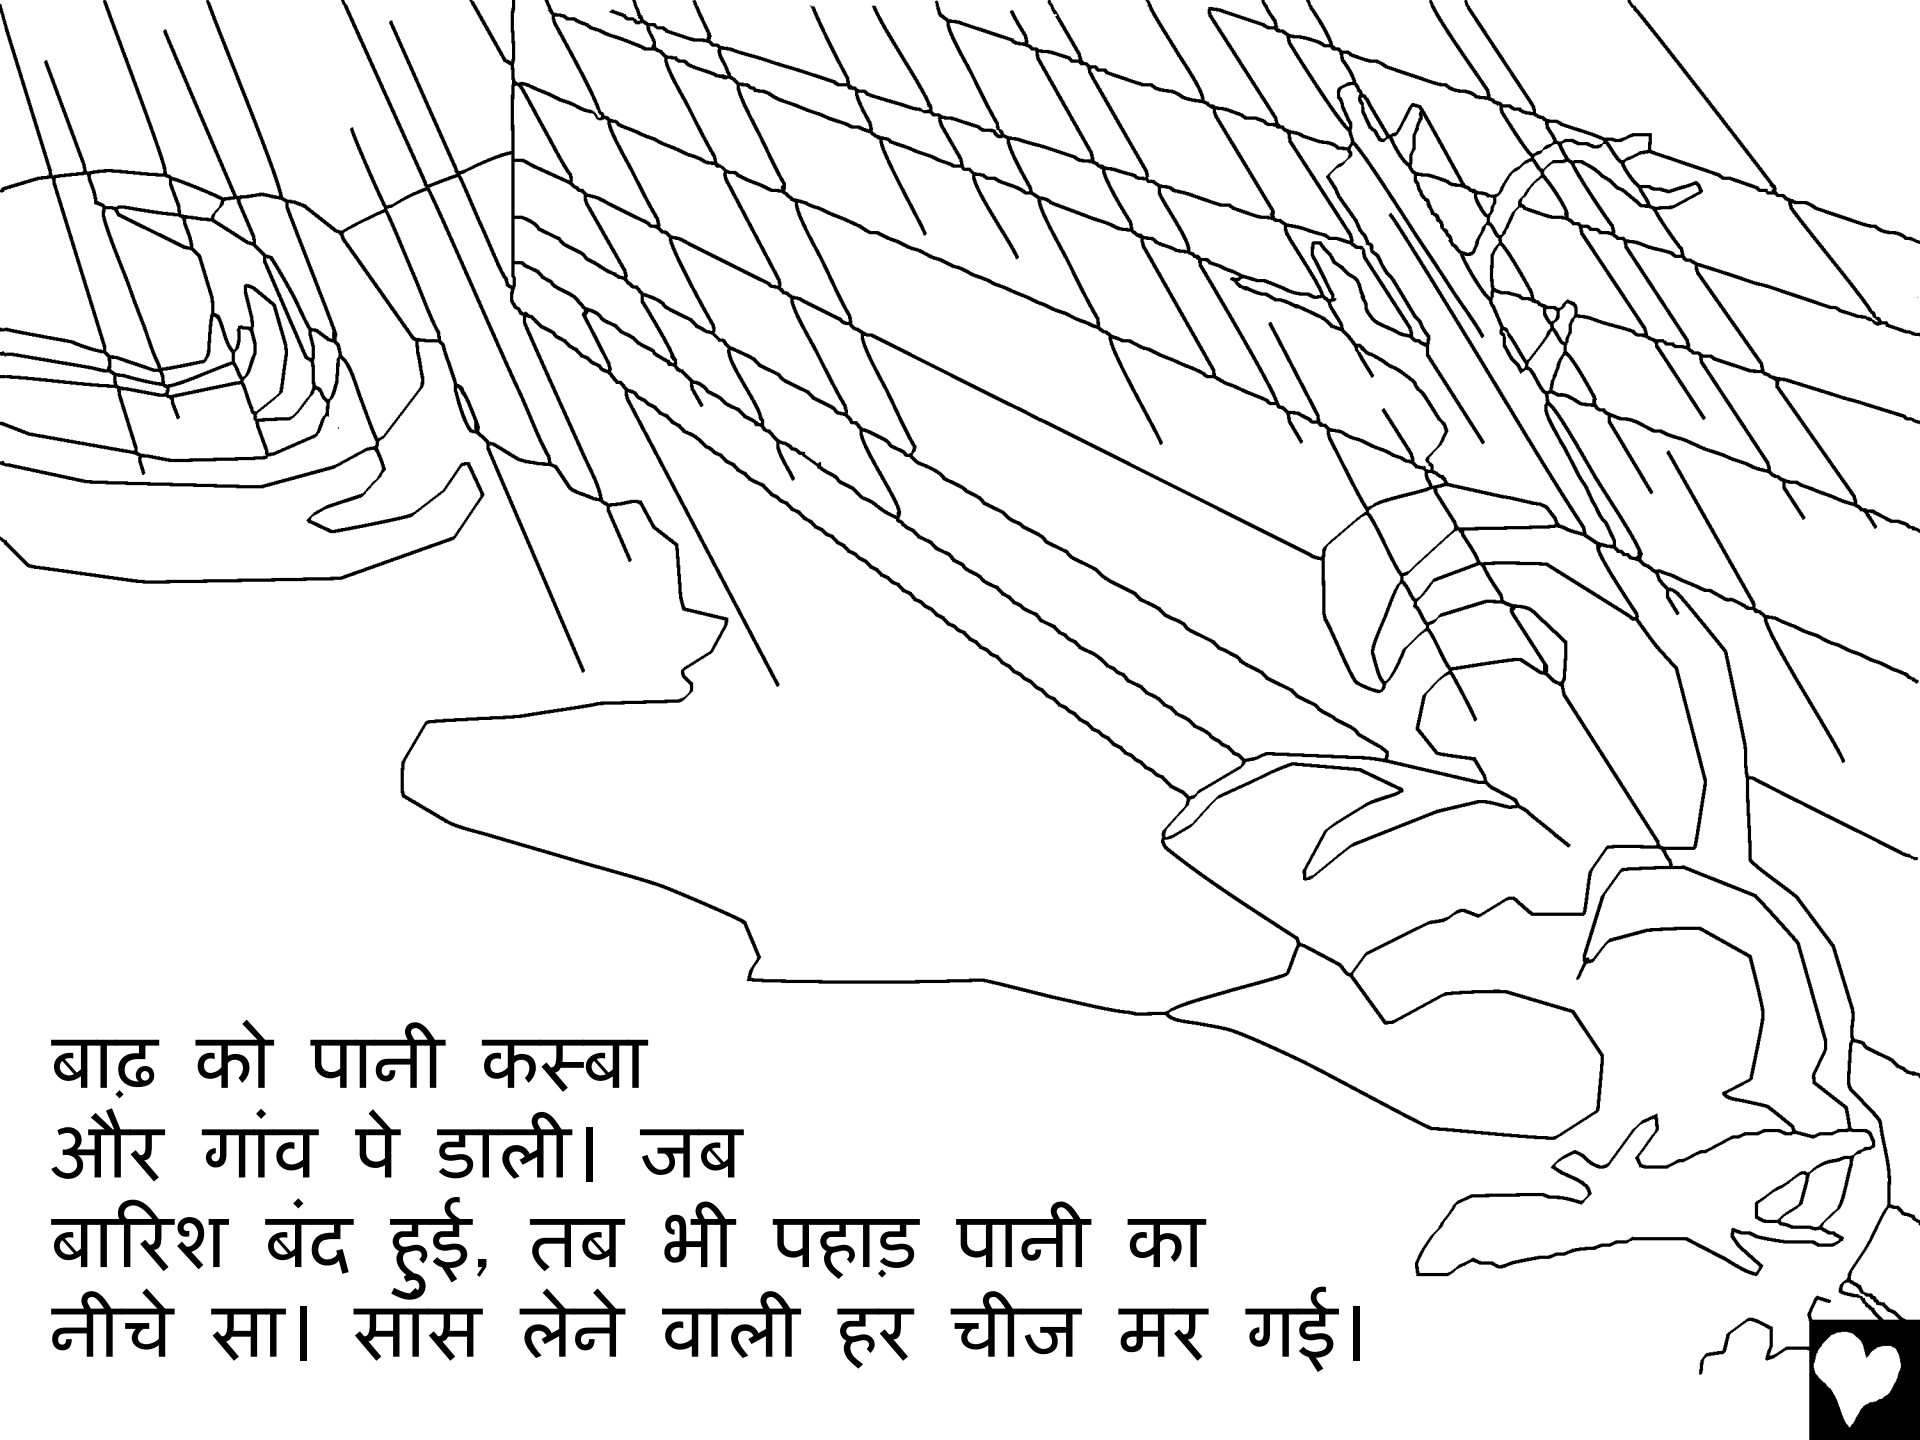 बाढ़ को पानी कस्बा
और गांव पे डाली। जब
बारिश बंद हुई, तब भी पहाड़ पानी का
नीचे सा। सास लेने वाली हर चीज मर गई।